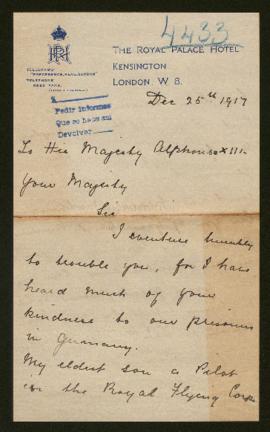 4433
THE ROYAL PALACE HOTEL
KENSINGTON
LONDON W 8.
TELEGRAMS
TELEPHONE
Pedir informes
Que se haga así
Devolver
Dec 25th 1917
To His Majesty Alphonso XIII
Your Majesty
Sir
I venture humbly
to trouble you, for I have
heard much of your
kindness to our prisoners
in Germany.
My eldest son a Pilot
in the Royal Flying Corps